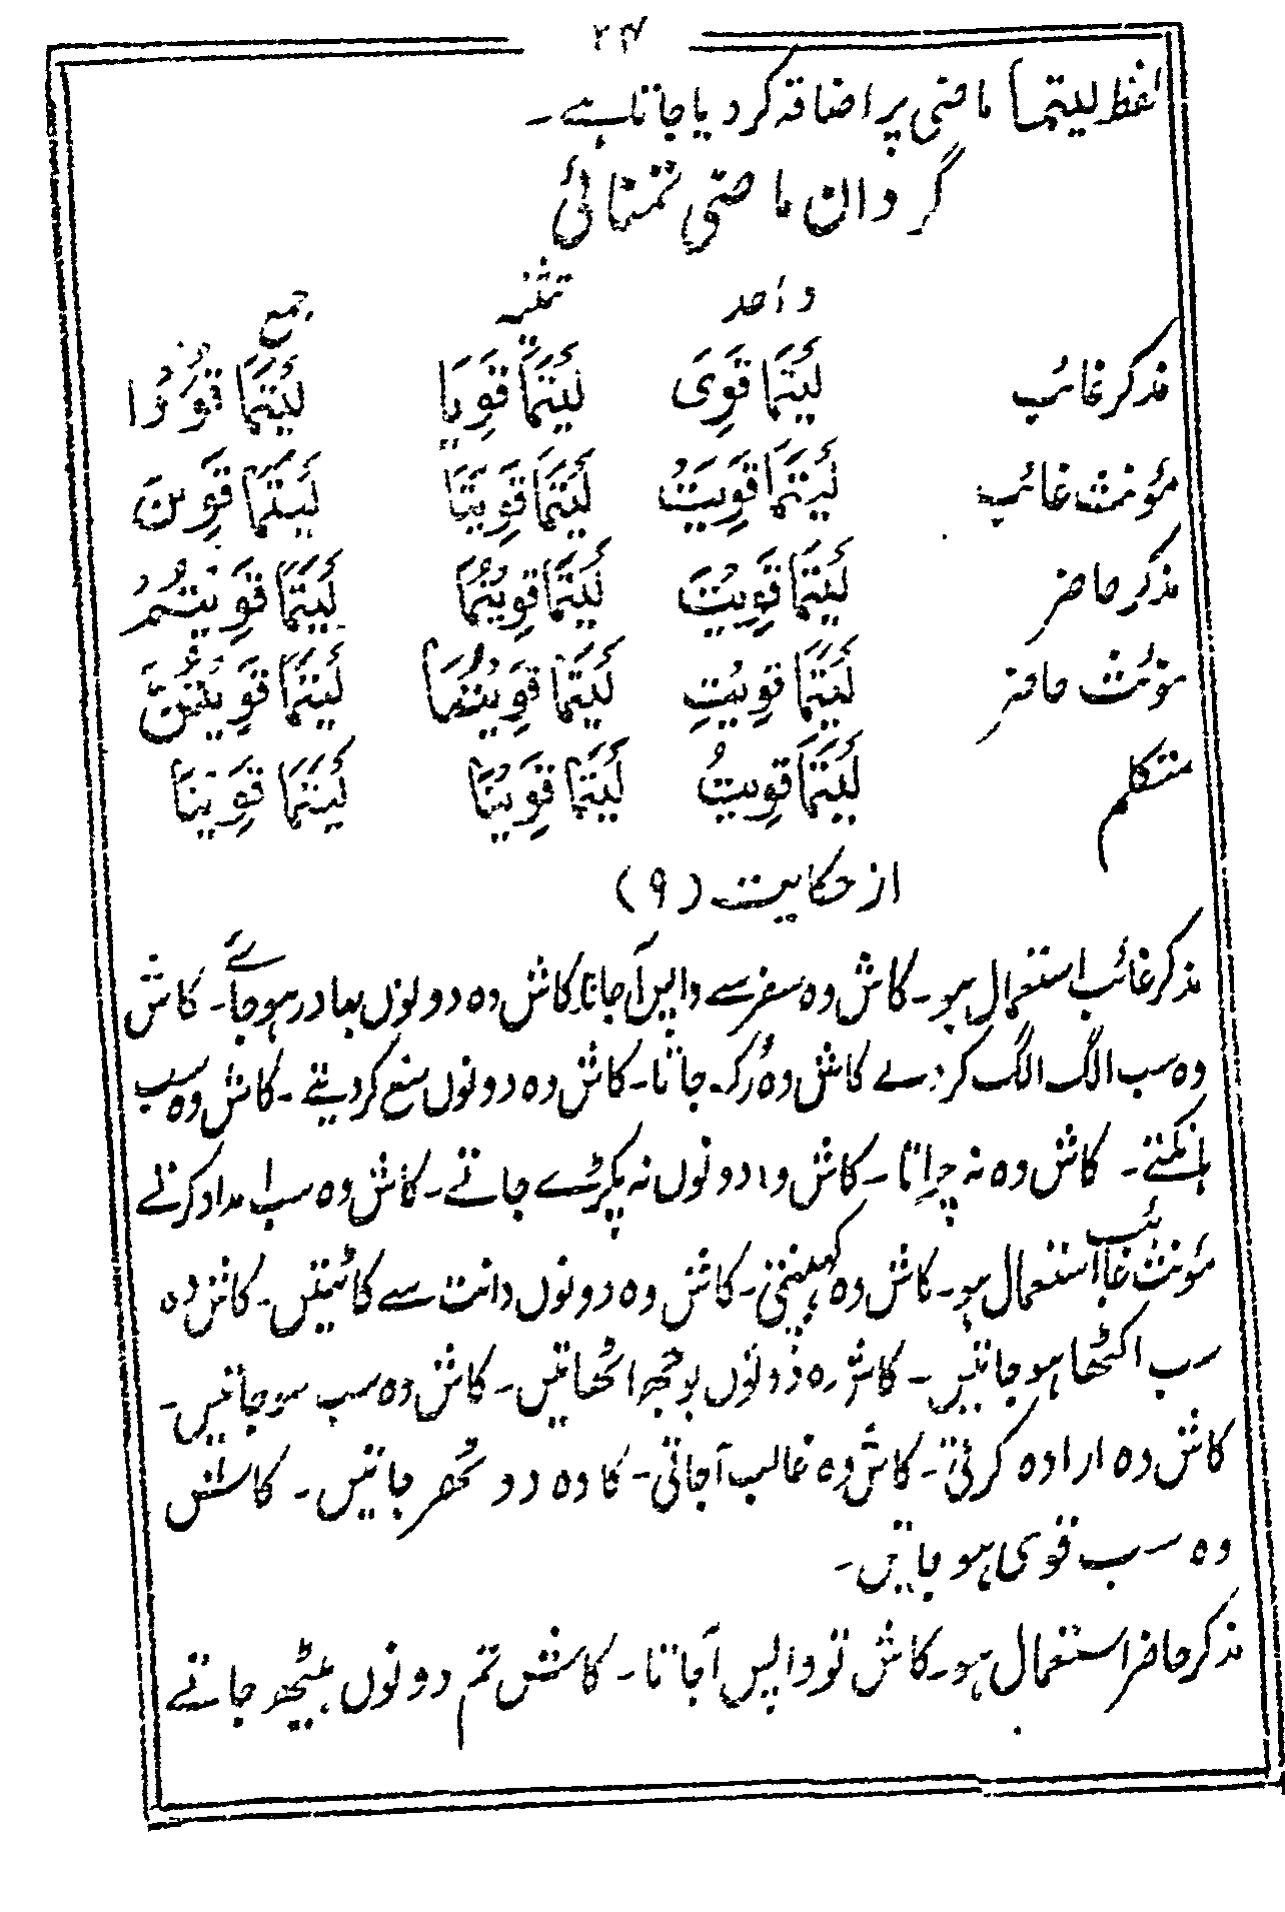 ۲۴
لفظ لیتما ماضی پر اضافہ کر دیا جاتا ہے۔
گردان ماضی تمنائی
واحد تثنیہ جمع
مذکر غائب لَیْتَمَا قَوِیَ لَیْتَمَا قَوِیَا لَیْتَمَا قَوُوْا
مؤنث غائب لَیْتَمَا قَوِیَتْ لَیْتَمَا قَوِیَتَا لَیْتَمَا قَوِیْنَ
مذکر حاضر لَیْتَمَا قَوِیْتَ لَیْتَمَا قَوِیْتُمَا لَیْتَمَا قَوِیْتُمْ
مؤنث حاضر لَیْتَمَا قَوِیْتِ لَیْتَمَا قَوِیْتُمَا لَیْتَمَا قَوِیْتُنَّ
متکلم لَیْتَمَا قَوِیْتُ لَیْتَمَا قَوِیْنَا لَیْتَمَا قَوِیْنَا
از حکایت (۹)
مذکر غائب استعمال ہو۔ کاش وہ سفر سے واپس آ جاتا۔ کاش وہ دونوں بہادر ہو جاتے۔ کاش
وہ سب الگ الگ کر دیے کاش وہ رک جاتا۔ کاش وہ دونوں منع کر دیتے۔ کاش وہ سب
ہانکتے۔ کاش وہ نہ چراتا۔ کاش وہ دونوں نہ پکڑے جاتے۔ کاش وہ سب امداد کرتے
مؤنث غائب استعمال ہو۔ کاش وہ کھینچتی۔ کاش وہ دونوں دانت سے کاٹتیں۔ کاش وہ
سب اکٹھا ہو جاتیں۔ کاش وہ دونوں بوجھ اٹھاتیں۔ کاش وہ سب سو جاتیں۔
کاش وہ ارادہ کرتی۔ کاش وہ غالب آجاتی۔ کا وہ دو ٹھر جاتیں۔ کاش
وہ سب قوی ہو جاتیں۔
مذکر حاضر استعمال ہو۔ کاش تو واپس آ جاتا۔ کاش تم دونوں بیٹھ جاتے